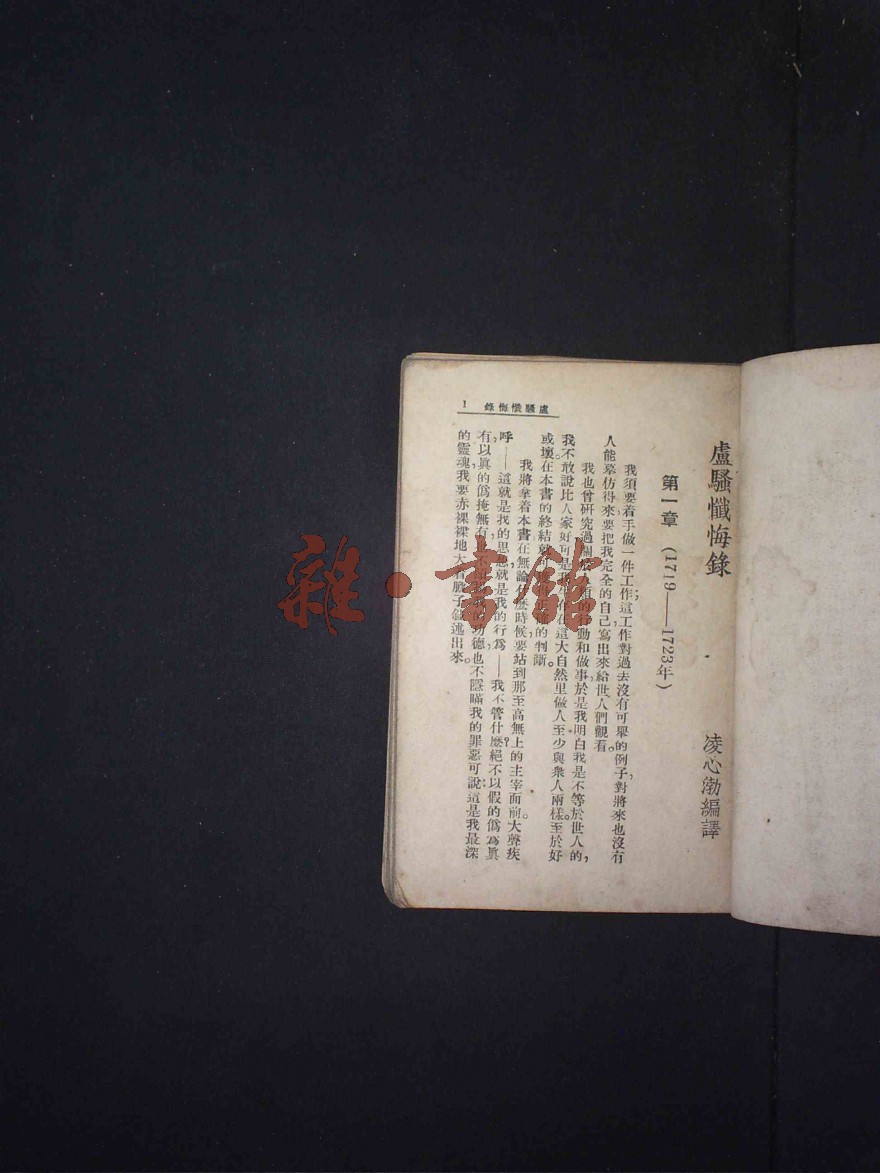 盧騷懺悔錄
凌心渤編譯
第一章 (1719——1723年)
我須要着手做一件工作；這工作對過去沒有可舉的例子，對將來也沒有
人能摹仿得來要把我完全的自己寫出來給世人們觀看。
我也曾研究過的行動和做事於是我明白我是不等於世人的，
我不敢說比人家好可是我在這大自然里做人至少與衆人兩樣。至於好
或壞在本書的終結的判斷。
我將拿着本書在無論什麽時候，要站到那至高無上的主宰面前。大聲疾
呼，——這就是我的思想就是我的行爲——我不管什麽？絕不以假的僞爲眞
有以眞的僞掩無有功德也不隱瞞我的罪惡可說這是我最深
的靈魂，我要赤裸裸地大着膽子敍述出來。
盧騷懺悔錄 1
雜·書館